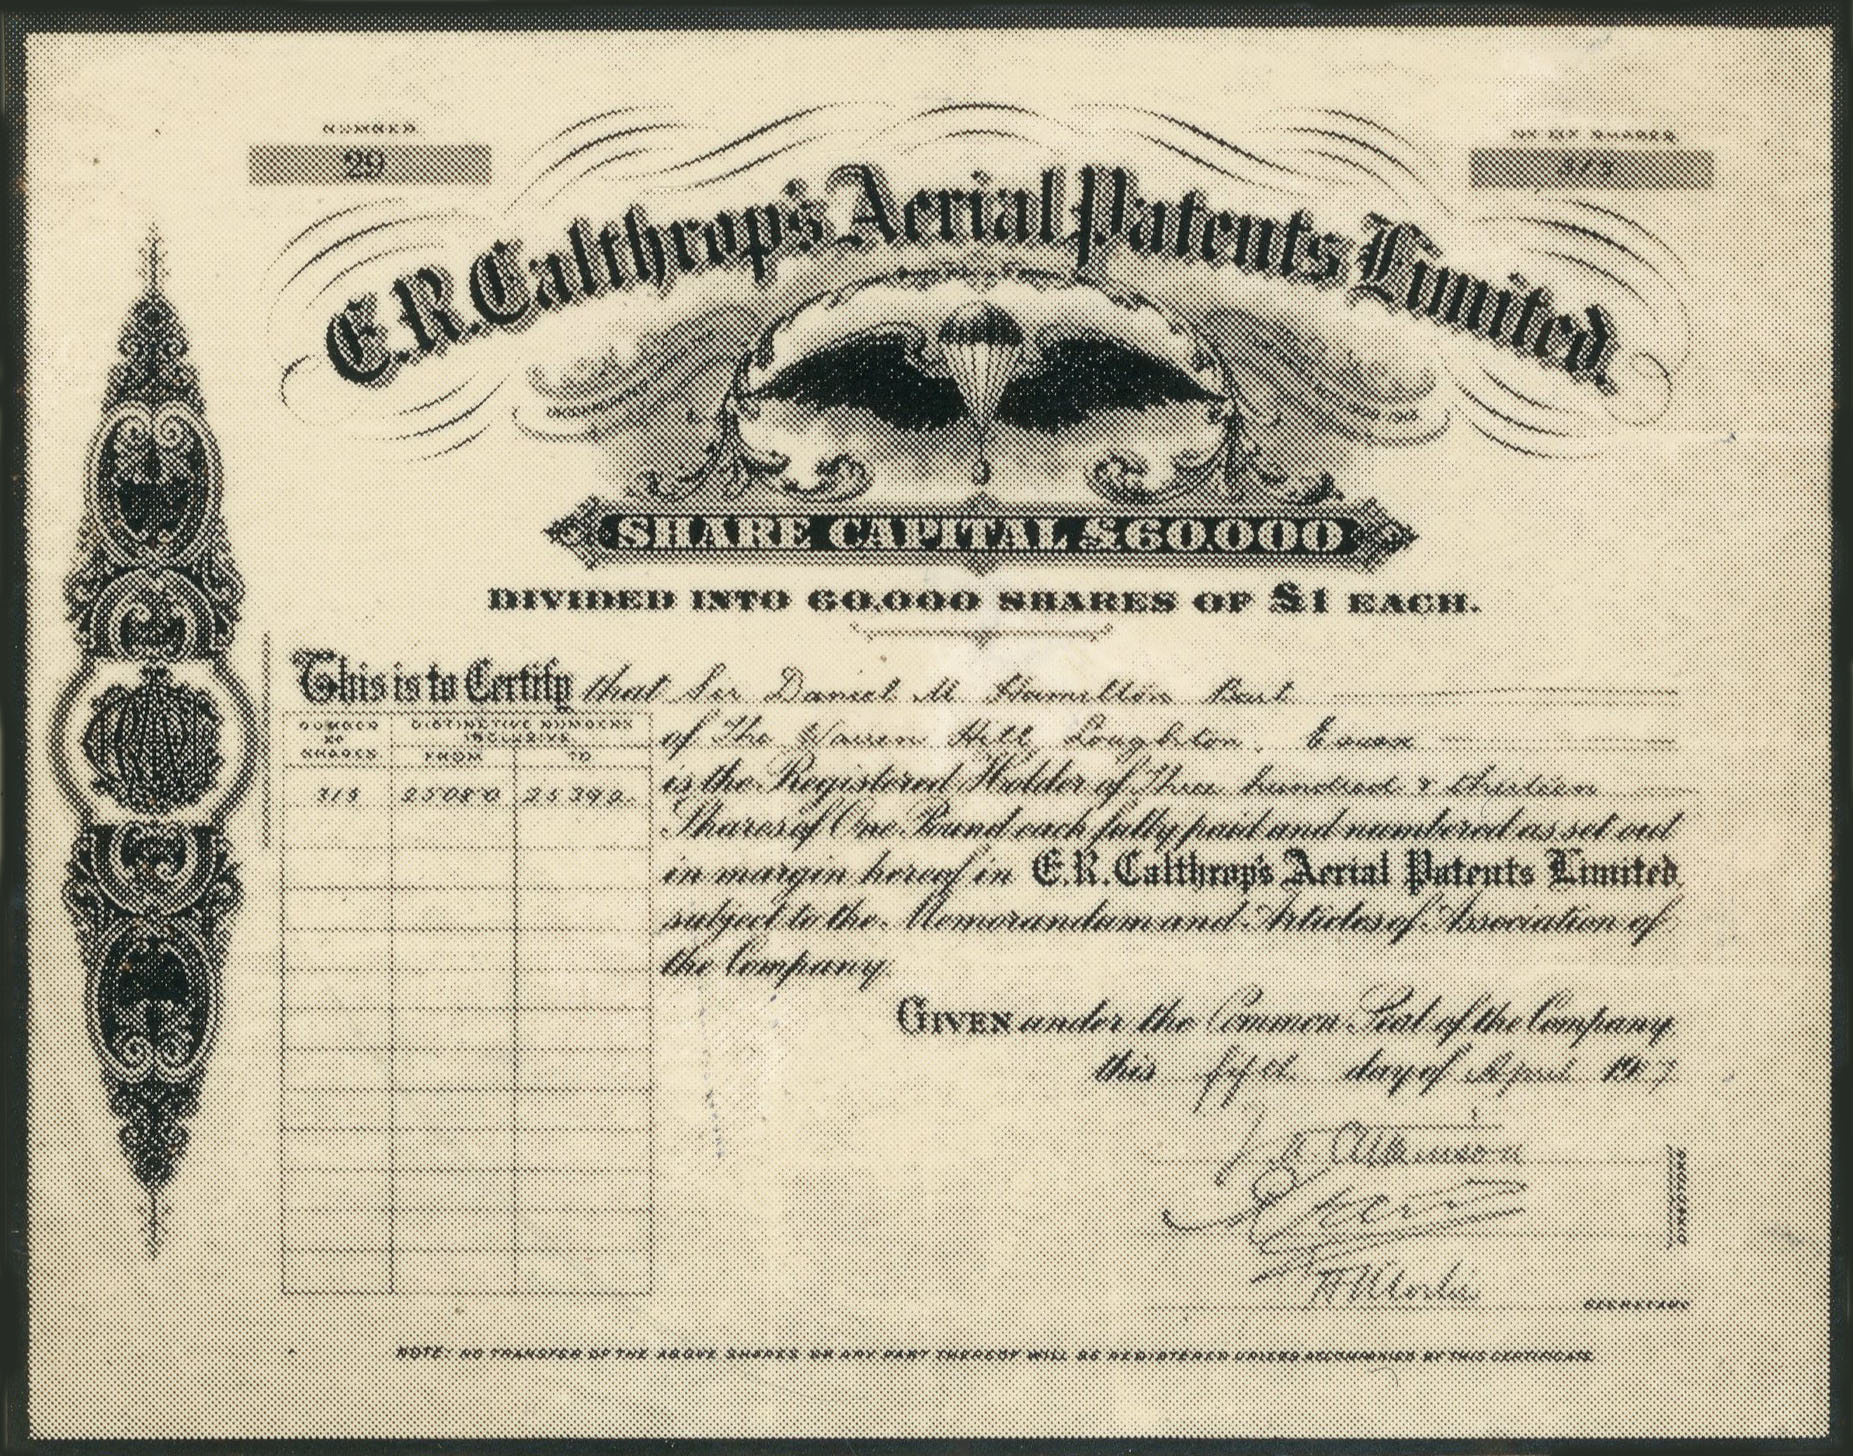 NUMBER
29
NO OF SHARES
313
E.R. Calthrop's Aerial Patents Limited.
SHARE CAPITAL £60,000
DIVIDED INTO 60,000 SHARES OF $1 EACH.
This is to Certify that Sir Daniel M Hamilton Bart
of The Warren Hill Loughton, Essex
is the Registered Holder of Three hundred & thirteen
Shares of One Pound each fully paid and numbered as set out
in margin hereof in E.R. Calthrop's Aerial Patents Limited
subject to the Memorandum and Articles of Association of
the Company.
NUMBER OF SHARES
DISTINCTIVE NUMBERS INCLUSIVE
FROM TO
313 25080 25392
GIVEN under the Common Seal of the Company
this fifth day of April 1917
SECRETARY
NOTE: NO TRANSFER OF THE ABOVE SHARES OR ANY PART THEREOF WILL BE REGISTERED UNLESS ACCOMPANIED BY THIS CERTIFICATE